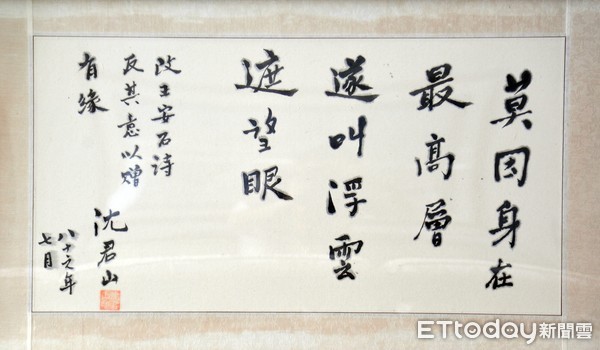 莫因身在
最高層
遂叫浮雲
遮望眼
改王安石詩
反其意以贈
有緣
沈君山
八十六年
七月
ETtoday新聞雲